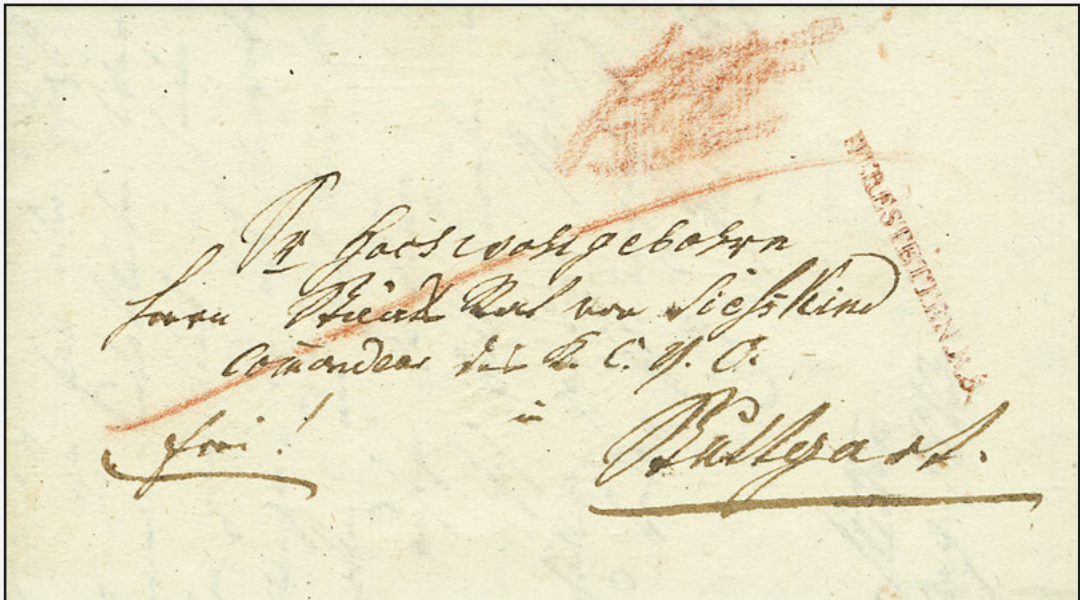 Sr Hochwohlgebohrn
Herrn Staats Rat von Siesskind
Comandeur des K. C. V. O.
frei!
in
Stuttgart.